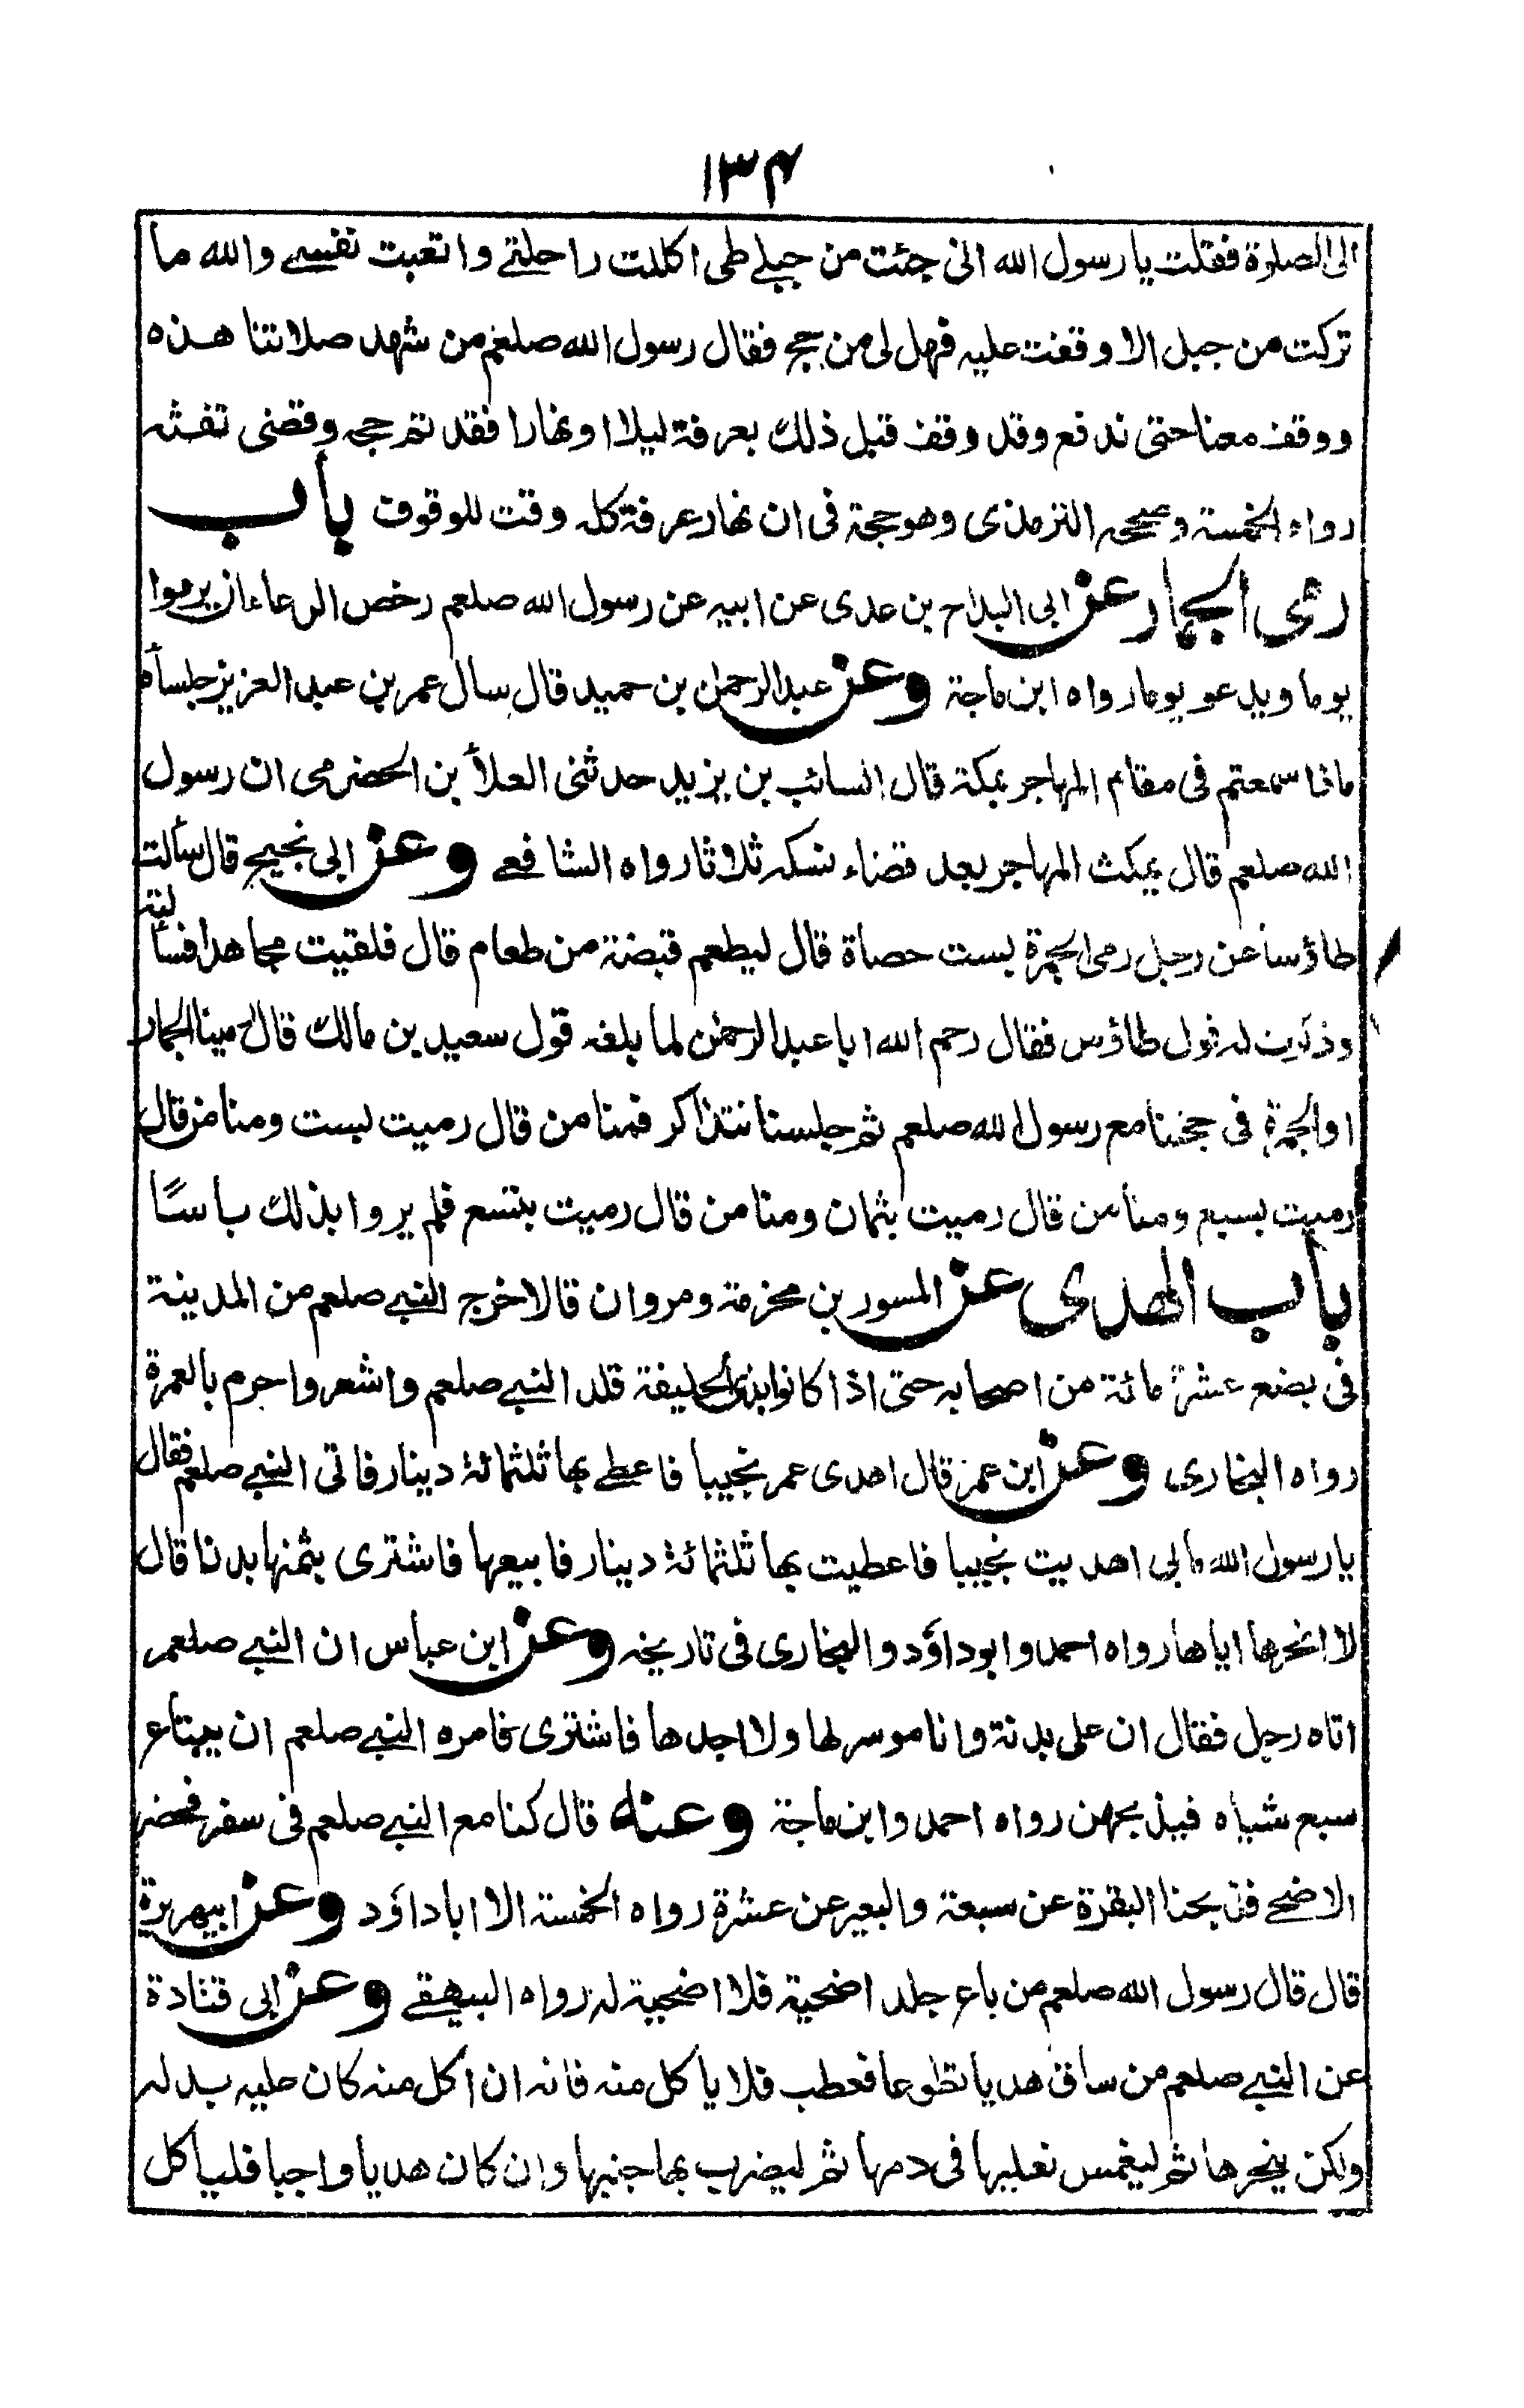 ۱۳۴
الی الصلوة فقلت یا رسول الله انی جئت من جبلے طی اکللت راحلتے واتعبت نفسے والله ما
ترکت من جبل الا وقفت علیه فهل لی من حج فقال رسول الله صلعم من شهد صلاتنا هذه
ووقف معنا حتی ندفع وقد وقف قبل ذلك بعرفة لیلا او نهارا فقد تم حجه وقضی تفثه
رواه الخمسة وصححه الترمذی وهو حجة فی ان نهار عرفة کله وقت للوقوف باب
رمی الجمار عن ابی البداح بن عدی عن ابیه عن رسول الله صلعم رخص الرعاء ان یرموا
یوما ویدعو یوما رواه ابن ماجة وعن عبد الرحمن بن حمید قال سال عمر بن عبد العزیز جلساؤه
ماذا سمعتم فی مقام المهاجر بمکة قال السائب بن یزید حدثنی العلأ بن الحضرمی ان رسول
الله صلعم قال یمکث المهاجر بعد قضاء نسکه ثلاثا رواه الشافعے وعن ابی نجیح قال سألت
طاؤسا عن رجل رمی الجمرة بست حصاة قال لیطعم قبضة من طعام قال فلقیت مجاهدا فسألته
وذکرت له قول طاؤس فقال رحم الله ابا عبد الرحمن لما بلغه قول سعید بن مالك قال رمینا الجمار
او الجمرة فی حجتنا مع رسول الله صلعم ثم جلسنا نتذاکر فمنا من قال رمیت بست ومنا من قال
رمیت بسبع ومنا من قال رمیت بثمان ومنا من قال رمیت بتسع فلم یروا بذلك باسًا
باب الهدی عن المسور بن مخرمة ومروان قالا خرج النبے صلعم من المدینة
فی بضع عشرة مائة من اصحابه حتی اذا کانوا بذی الحلیفة قلد النبے صلعم واشعر واحرم بالعمرة
رواه البخاری وعن ابن عمر قال اهدی عمر نجیبا فاعطے بها ثلثمائة دینار فاتی النبے صلعم فقال
یا رسول الله مالی اهدیت نجیبا فاعطیت بها ثلثمائة دینار فابیعها فاشتری بثمنها بدنا قال
لا انحرها ایاها رواه احمد وابو داوٗد والبخاری فی تاریخه وعن ابن عباس ان النبے صلعم
اتاه رجل فقال ان علی بدنة وانا موسر لها ولا اجدها فاشتری فامره النبے صلعم ان یبتاع
سبع شیاه فیذبحهن رواه احمد وابن ماجة وعنه قال کنا مع النبے صلعم فی سفر فحضر
الاضحے فذبحنا البقرة عن سبعة والبعیر عن عشرة رواه الخمسة الا ابا داوٗد وعن ابیهریرة
قال قال رسول الله صلعم من باع جلد اضحیة فلا اضحیة له رواه البیهقے وعن ابی قتادة
عن النبے صلعم من ساق هدیا تطوعا فعطب فلا یاکل منه فانه ان اکل منه کان علیه بدله
ولکن ینحرها ثم لیغمس نعلیها فی دمها ثم لیضرب بها جنبها وان کان هدیا واجبا فلیاکل